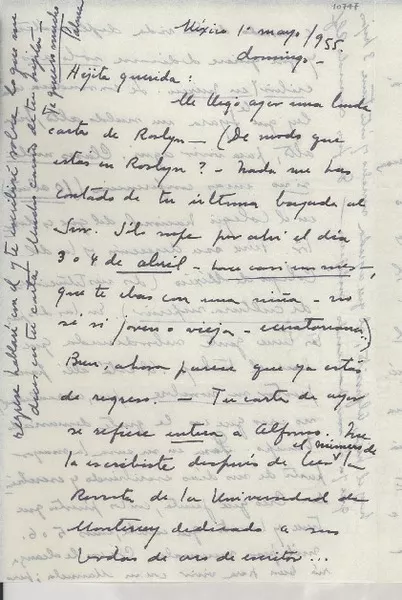 10747
México 1º mayo/955.
domingo.-
Hijita querida:
Me llegó ayer una linda
carta de Roslyn - (De modo que
estás en Roslyn? - Nada me has
contado de tu última bajada al
Sur. Sólo supe por ahí el día
3 o 4 de abril - hace casi un mes,
que te ibas con una niña - no
sé si joven o vieja - ecuatoriana.)
Bien, ahora parece que ya estás
de regreso. - Tu carta de ayer
se refiere entera a Alfonso. Me
la escribiste después de leer el número de la
Revista de la Universidad de
Monterrey dedicado a sus
bodas de oro de escritor...
regrese hablaré con él y te escribiré sobre lo que me
dices en tu carta. Muchos cariños de tu hijita
Te quiere mucho
Palma